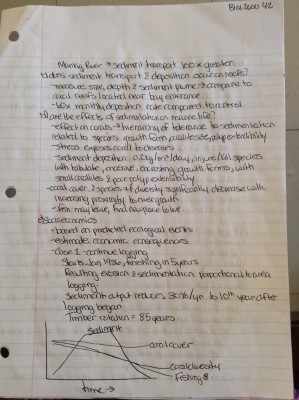 BIOL 2600 42
Manley River → sediment transport 100x greater
c) does sediment transport & deposition occur on reefs?
- measure size, depth & sediment plume → compare to
coral reefs located near bay entrance
- 60x monthly deposition rate compared to control
d) are the effects of sedimentation on marine life?
- effect on corals → hierarchy of tolerance to sedimentation
related to species' growth form, calice size, polyp extensibility
- Stress exposes coral to diseases
- sediment deposition 0.2 kg/m²/day, injure/kill species
with tabulate, massive, encrusting growth forms, with
small calices & poor polyp extensibility
- coral cover & species diversity significantly decrease with
increasing proximity to river mouth
- fish may leave, find new place to live.
e) Socioeconomics
- based on predicted ecological events
- estimate economic consequences
- case 1 - continue logging
Starts Jan 1986, finishing in 5 years
Resulting erosion & sedimentation proportional to area
logging.
Sediment output reduces 30%/yr to 10th year after
logging began
Timber rotation = 85 years
sediment
coral cover
coral diversity
Fishing $
time →